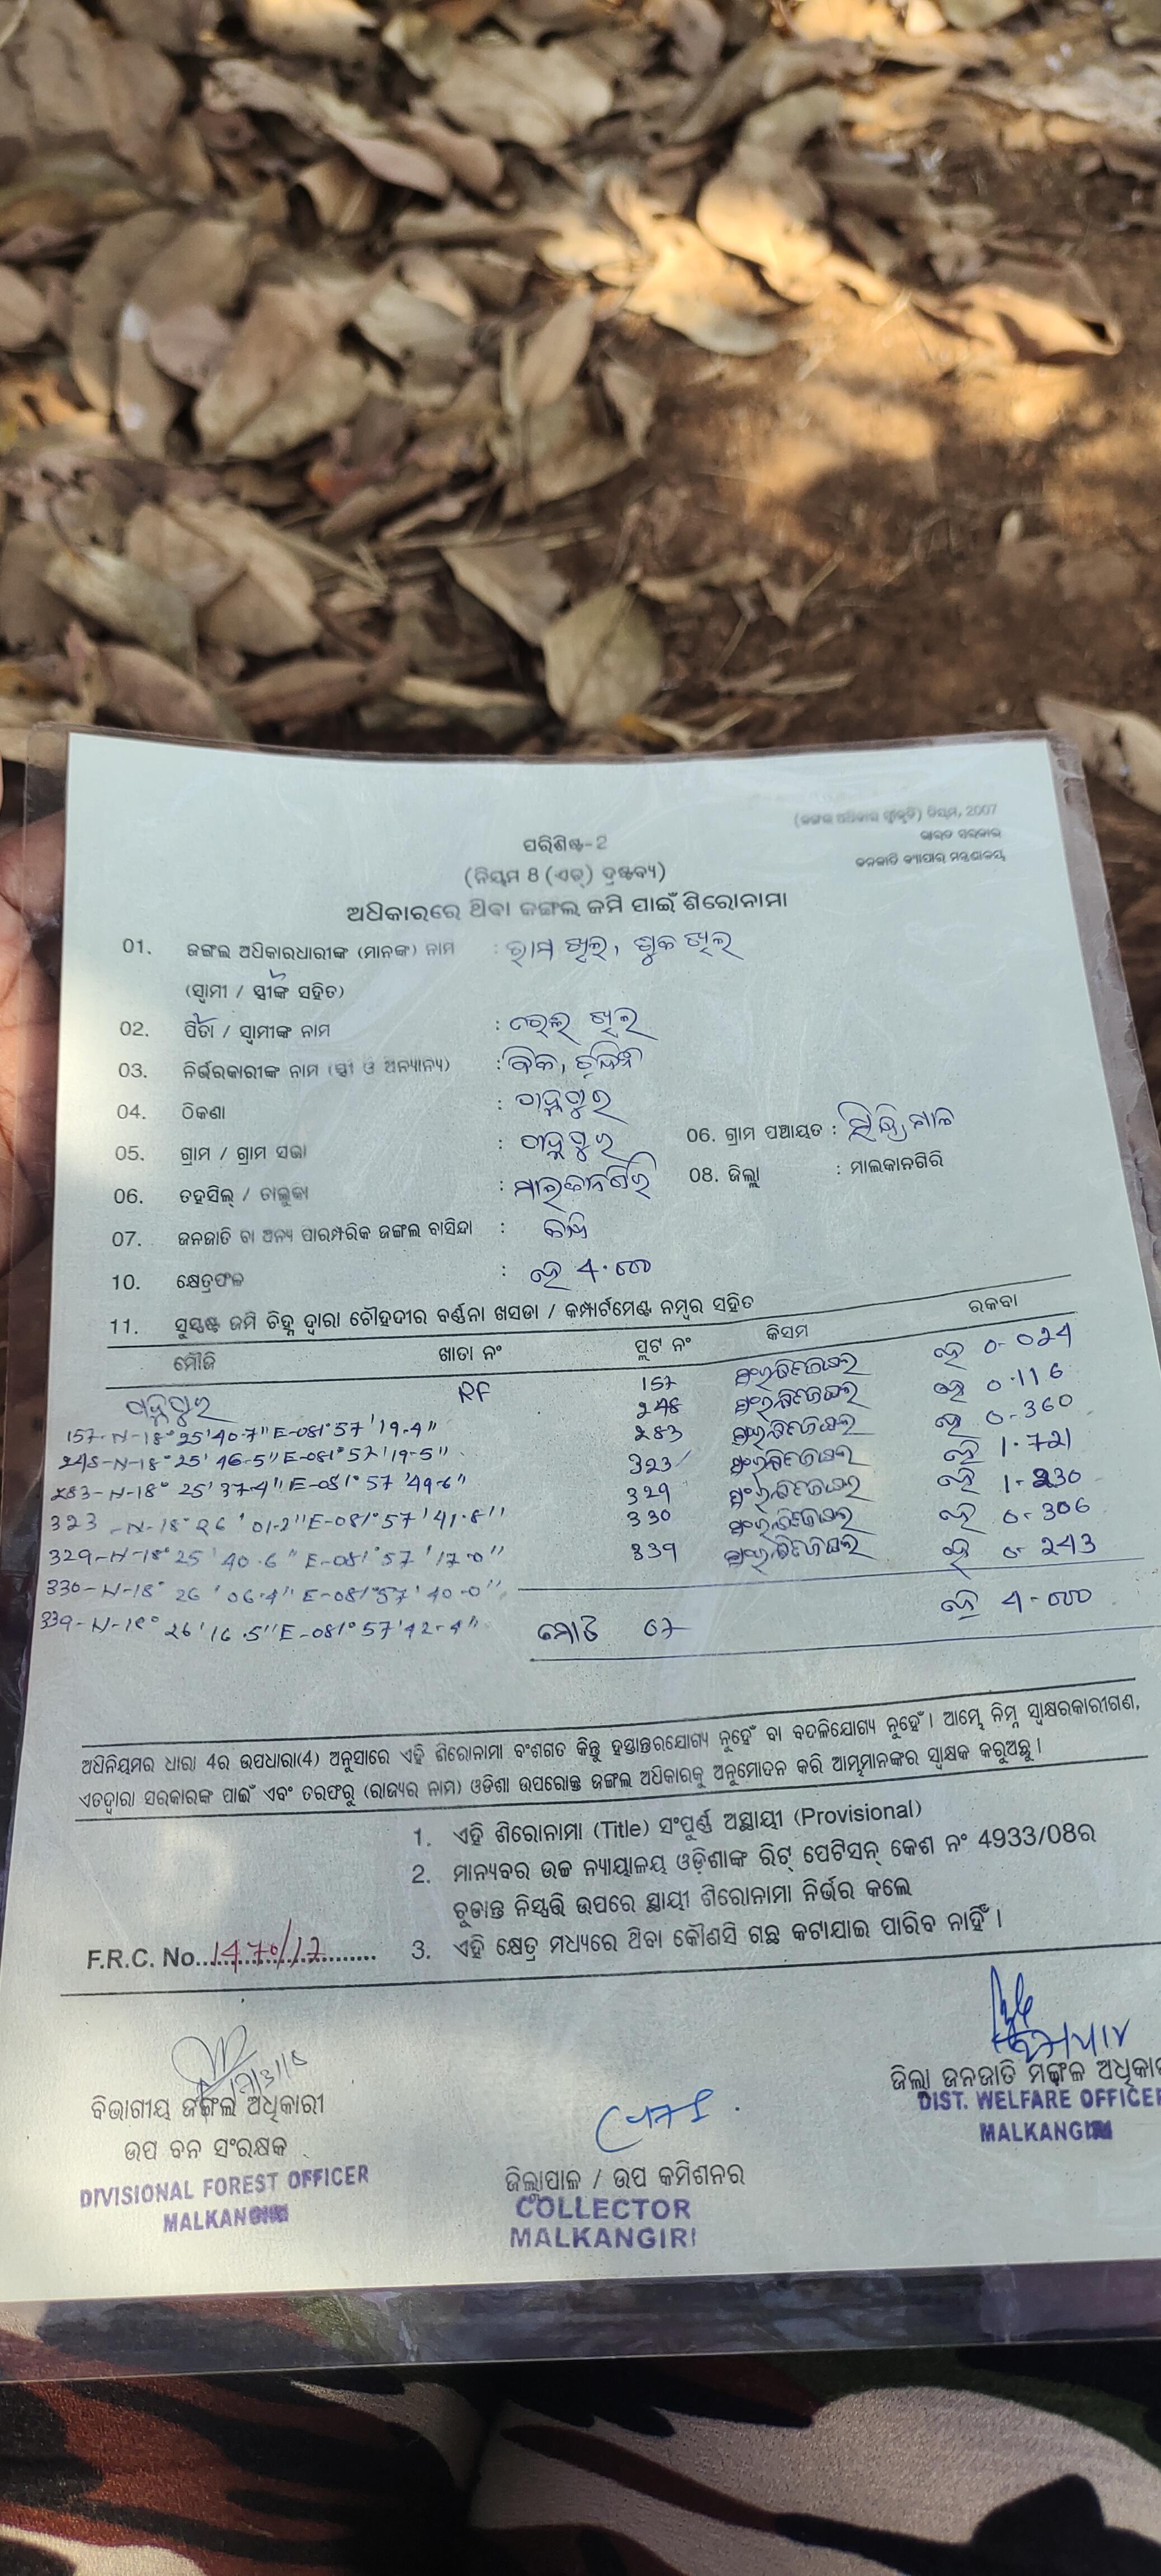 (ଜଙ୍ଗଲ ଅଧିକାର ସ୍ୱୀକୃତି) ନିୟମ, 2007
ଭାରତ ସରକାର
ଜନଜାତି ବ୍ୟାପାର ମନ୍ତ୍ରଣାଳୟ
ପରିଶିଷ୍ଟ-2
(ନିୟମ 8 (ଏଚ୍) ଦ୍ରଷ୍ଟବ୍ୟ)
ଅଧିକାରରେ ଥିବା ଜଙ୍ଗଲ ଜମି ପାଇଁ ଶିରୋନାମା
01. ଜଙ୍ଗଲ ଅଧିକାରଧାରୀଙ୍କ (ମାନଙ୍କ) ନାମ : ରାମ ଖିଲ, ଶୁକ ଖିଲ
(ସ୍ୱାମୀ / ସ୍ତ୍ରୀଙ୍କ ସହିତ)
02. ପିତା / ସ୍ୱାମୀଙ୍କ ନାମ : ଖିଲ
03. ନିର୍ଭରକାରୀଙ୍କ ନାମ (ସ୍ତ୍ରୀ ଓ ଅନ୍ୟାନ୍ୟ) :
04. ଠିକଣା :
05. ଗ୍ରାମ / ଗ୍ରାମ ସଭା : 06. ଗ୍ରାମ ପଞ୍ଚାୟତ :
06. ତହସିଲ୍ / ତାଲୁକା : ମାଲକାନଗିରି 08. ଜିଲ୍ଲା : ମାଲକାନଗିରି
07. ଜନଜାତି ବା ଅନ୍ୟ ପାରମ୍ପରିକ ଜଙ୍ଗଲ ବାସିନ୍ଦା :
10. କ୍ଷେତ୍ରଫଳ : ହେ 4.000
11. ସୁସ୍ପଷ୍ଟ ଜମି ଚିହ୍ନ ଦ୍ୱାରା ଚୌହଦୀର ବର୍ଣ୍ଣନା ଖସଡା / କମ୍ପାର୍ଟମେଣ୍ଟ ନମ୍ବର ସହିତ
ମୌଜି ଖାତା ନଂ ପ୍ଲଟ ନଂ କିସମ ରକବା
RF 157 ହେ 0-024
157-N-18°25'40.7"E-081°57'19.4" 248 ହେ 0.116
248-N-18°25'46.5"E-081°57'19.5" 283 ହେ 0-360
283-N-18°25'37.4"E-081°57'49.6" 323 ହେ 1.721
323-N-18°26'01.2"E-081°57'41.8" 329 ହେ 1-230
329-N-18°25'40.6"E-081°57'17.0" 330 ହେ 0-306
330-N-18°26'06.4"E-081°57'40.0" 339 ହେ 0-243
339-N-18°26'16.5"E-081°57'42.4" ମୋଟ 07 ହେ 4-000
ଅଧିନିୟମର ଧାରା 4ର ଉପଧାରା(4) ଅନୁସାରେ ଏହି ଶିରୋନାମା ବଂଶଗତ କିନ୍ତୁ ହସ୍ତାନ୍ତରଯୋଗ୍ୟ ନୁହେଁ ବା ବଦଳିଯୋଗ୍ୟ ନୁହେଁ । ଆମ୍ଭେ ନିମ୍ନ ସ୍ୱାକ୍ଷରକାରୀଗଣ,
ଏତଦ୍ୱାରା ସରକାରଙ୍କ ପାଇଁ ଏବଂ ତରଫରୁ (ରାଜ୍ୟର ନାମ) ଓଡିଶା ଉପରୋକ୍ତ ଜଙ୍ଗଲ ଅଧିକାରକୁ ଅନୁମୋଦନ କରି ଆମ୍ଭମାନଙ୍କର ସ୍ୱାକ୍ଷକ କରୁଅଛୁ ।
1. ଏହି ଶିରୋନାମା (Title) ସଂପୂର୍ଣ୍ଣ ଅସ୍ଥାୟୀ (Provisional)
2. ମାନ୍ୟବର ଉଚ୍ଚ ନ୍ୟାୟାଳୟ ଓଡ଼ିଶାଙ୍କ ରିଟ୍ ପେଟିସନ୍ କେଶ ନଂ 4933/08ର
ଚୂଡାନ୍ତ ନିସ୍ପତ୍ତି ଉପରେ ସ୍ଥାୟୀ ଶିରୋନାମା ନିର୍ଭର କଲେ
3. ଏହି କ୍ଷେତ୍ର ମଧ୍ୟରେ ଥିବା କୌଣସି ଗଛ କଟାଯାଇ ପାରିବ ନାହିଁ ।
F.R.C. No. 1470/17
ବିଭାଗୀୟ ଜଙ୍ଗଲ ଅଧିକାରୀ
ଉପ ବନ ସଂରକ୍ଷକ
DIVISIONAL FOREST OFFICER
MALKANGIRI
ଜିଲ୍ଲାପାଳ / ଉପ କମିଶନର
COLLECTOR
MALKANGIRI
ଜିଲ୍ଲା ଜନଜାତି ମଙ୍ଗଳ ଅଧିକା
DIST. WELFARE OFFICER
MALKANGIRI